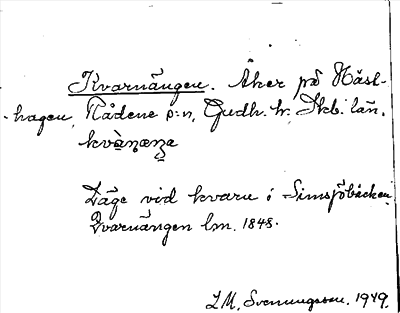 Kvarnängen. Åker på Häst-
hagen, Rådene s:n, Gudh. hr. Skb. län.
kvà̱ṇæŋa
Läge vid kvarn i Simsjöbäcken.
Qvarnängen lm. 1848.
I. M. Svenungsson. 1949.